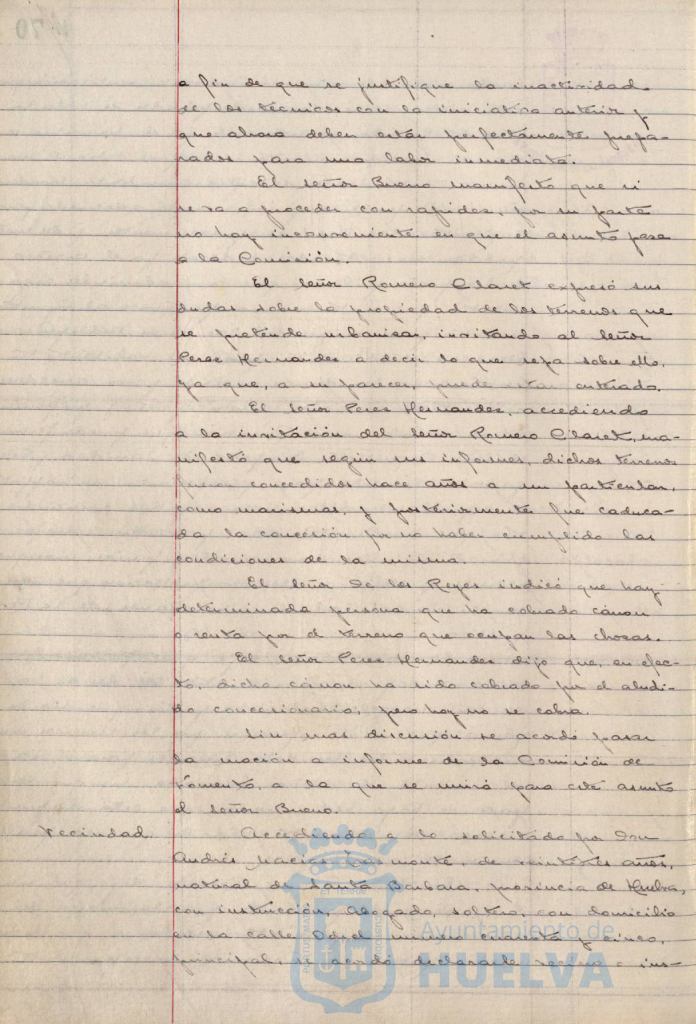 a fin de que se justifique la inactividad
de los técnicos con la iniciativa anterior y
que ahora deben estar perfectamente prepa-
rados para una labor inmediata.
El señor Bueno manifestó que si
se va a proceder con rapidez, por su parte
no hay inconveniente en que el asunto pase
a la Comisión.
El señor Romero Claret expresó sus
dudas sobre la propiedad de los terrenos que
se pretende urbanizar, invitando al señor
Perez Hernandez a decir lo que sepa sobre ello,
ya que, a su parecer, puede estar enterado.
El señor Perez Hernandez, accediendo
a la invitación del señor Romero Claret, ma-
nifestó que según sus informes, dichos terrenos
fueron concedidos hace años a un particular,
como marismas, y posteriormente fue caduca-
da la concesión por no haber cumplido las
condiciones de la misma.
El señor De los Reyes indicó que hay
determinada persona que ha cobrado cánon
o renta por el terreno que ocupan las chozas.
El señor Perez Hernandez dijo que, en efec-
to, dicho cánon ha sido cobrado por el aludi-
do concesionario, pero hoy no se cobra.
Sin mas discusión se acordó pasar
la moción a informe de la Comisión de
Fomento, a la que se unirá para este asunto
el señor Bueno.
Vecindad
Accediendo a lo solicitado por Don
Andrés Macías, de veintitrés años,
natural de Santa Barbara, provincia de Huelva,
con instrucción, Abogado, soltero, con domicilio
en la calle Odiel número cuarenta y cinco,
principal, se acordó declararle vecino e ins-
Ayuntamiento de
HUELVA